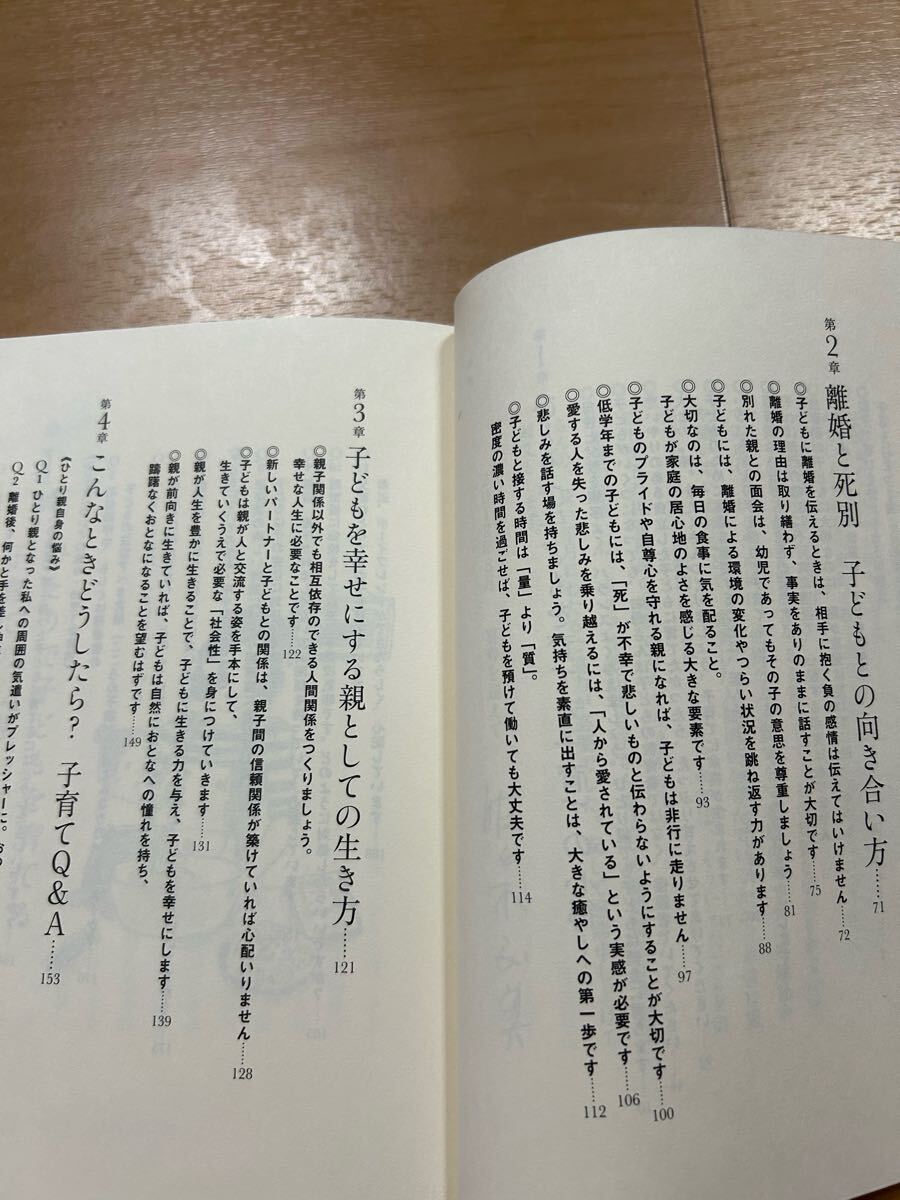 第2章 離婚と死別 子どもとの向き合い方……71
◎子どもに離婚を伝えるときは、相手に抱く負の感情は伝えてはいけません……72
◎離婚の理由は取り繕わず、事実をありのままに話すことが大切です……75
◎別れた親との面会は、幼児であってもその子の意思を尊重しましょう……81
◎子どもには、離婚による環境の変化やつらい状況を跳ね返す力があります……88
◎大切なのは、毎日の食事に気を配ること。
子どもが家庭の居心地のよさを感じる大きな要素です……93
◎子どものプライドや自尊心を守れる親になれば、子どもは非行に走りません……97
◎低学年までの子どもには、「死」が不幸で悲しいものと伝わらないようにすることが大切です……100
◎愛する人を失った悲しみを乗り越えるには、「人から愛されている」という実感が必要です……106
◎悲しみを話す場を持ちましょう。気持ちを素直に出すことは、大きな癒やしへの第一歩です……112
◎子どもと接する時間は「量」より「質」。
密度の濃い時間を過ごせば、子どもを預けて働いても大丈夫です……114
第3章 子どもを幸せにする親としての生き方……121
◎親子関係以外でも相互依存のできる人間関係をつくりましょう。
幸せな人生に必要なことです……122
◎新しいパートナーと子どもとの関係は、親子間の信頼関係が築けていれば心配いりません……128
◎子どもは親が人と交流する姿を手本にして、
生きていくうえで必要な「社会性」を身につけていきます……131
◎親が人生を豊かに生きることで、子どもに生きる力を与え、子どもを幸せにします……139
◎親が前向きに生きていれば、子どもは自然におとなへの憧れを持ち、
躊躇なくおとなになることを望むはずです……149
第4章 こんなときどうしたら? 子育てQ&A……153
《ひとり親自身の悩み》
Q1 ひとり親となった私への周囲の気遣いがプレッシャーに。
Q2 離婚後、何かと手を差し